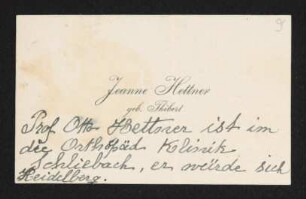 9
Jeanne Hettner
geb. Thibert
Prof. Otto Hettner ist im
der Orthopäd Klinik
Schliebach, er würde sich
Heidelberg.